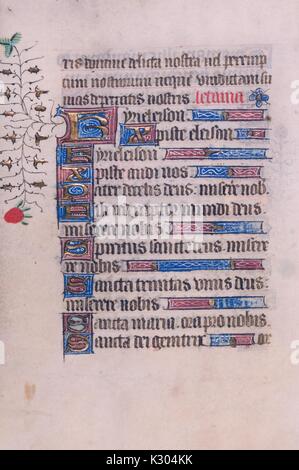 ris domine delicta nostra vel parentum
nostrorum neque vindictam su
mas de peccatis nostris. letania
Kyrieleison
Xpiste eleison
Kyrieleison
Xpiste audi nos
Pater de celis deus. miserere nob.
Fili redemptor mundi deus.
miserere nobis
Spiritus sancte deus. misere
re nobis
Sancta trinitas unus deus.
miserere nobis
Sancta maria. ora pro nobis.
Sancta dei genitrix or
alamy stock photo
alamy
K304KK
www.alamy.com